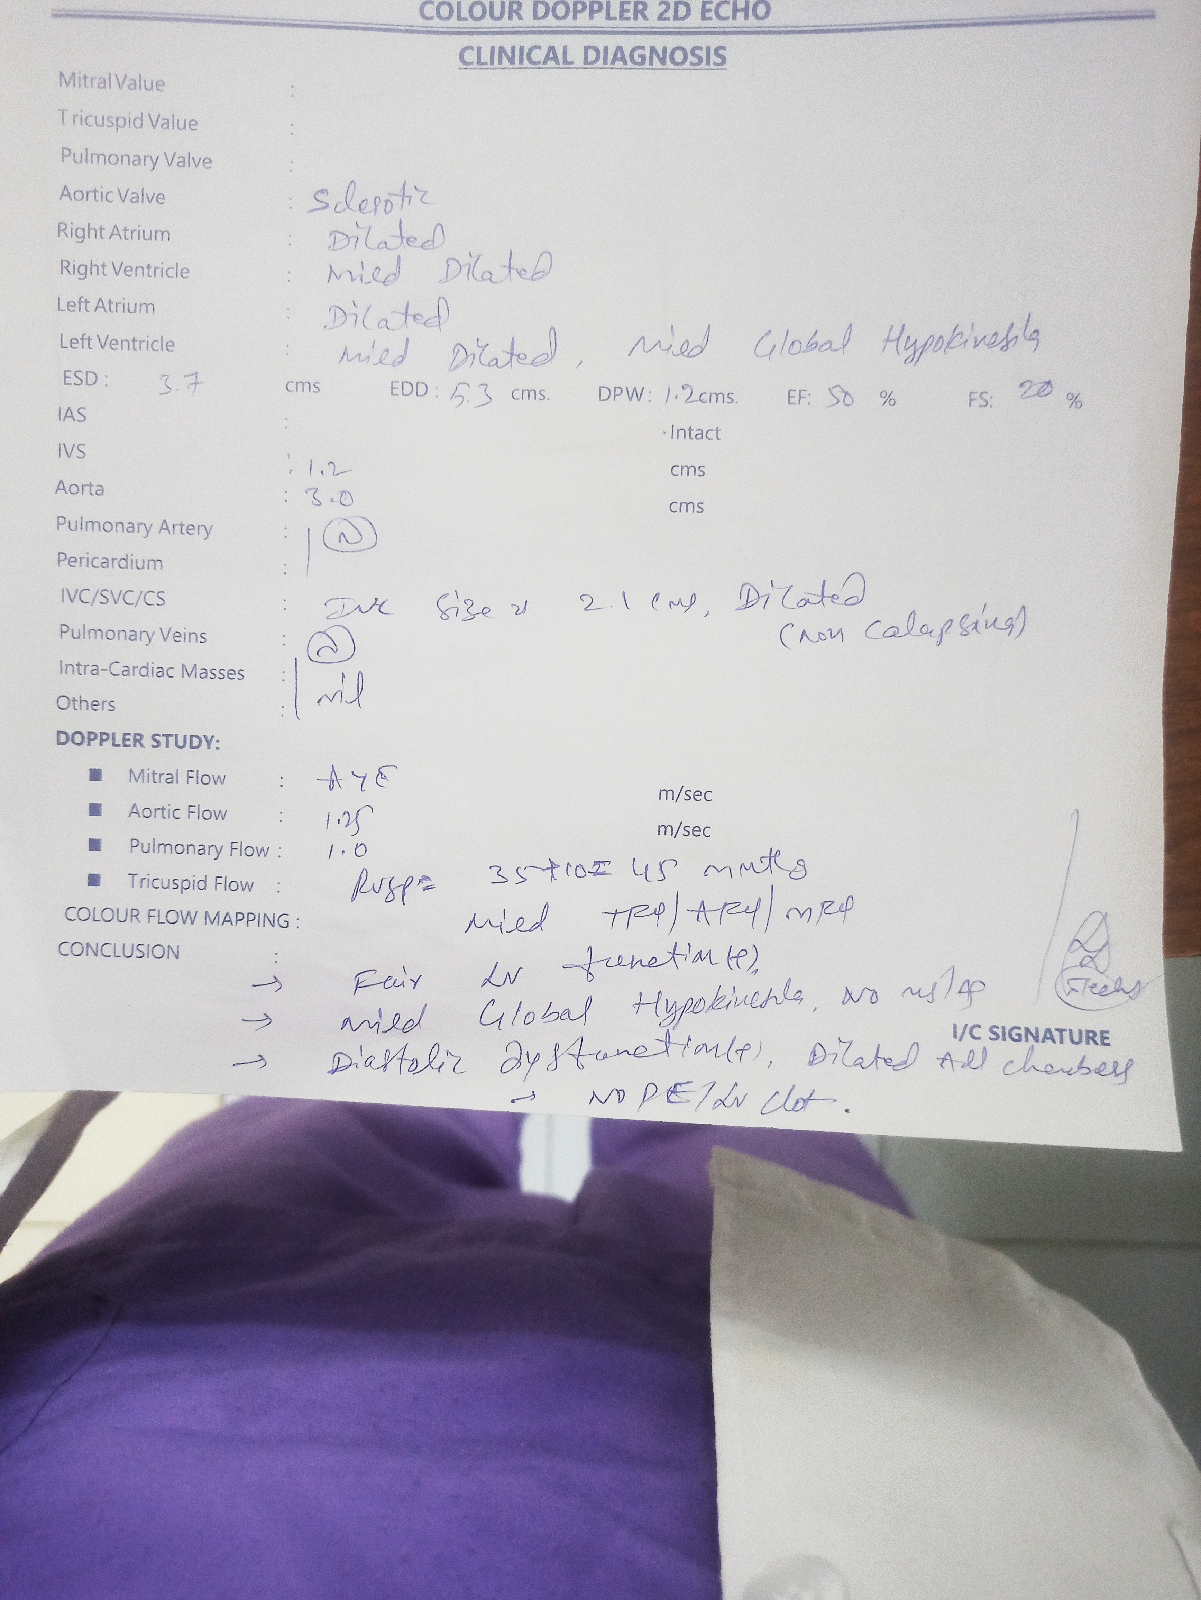 COLOUR DOPPLER 2D ECHO
CLINICAL DIAGNOSIS
Mitral Value :
Tricuspid Value :
Pulmonary Valve :
Aortic Valve : Sclerotic
Right Atrium : Dilated
Right Ventricle : Mild Dilated
Left Atrium : Dilated
Left Ventricle : Mild Dilated, Mild Global Hypokinesia
ESD : 3.7 cms EDD : 5.3 cms. DPW: 1.2 cms. EF: 50 % FS: 20 %
IAS : Intact
IVS : 1.2 cms
Aorta : 3.0 cms
Pulmonary Artery : N
Pericardium :
IVC/SVC/CS : IVC Size 2.1 cms, Dilated
(Non Calapsing)
Pulmonary Veins : N
Intra-Cardiac Masses : nil
Others :
DOPPLER STUDY:
Mitral Flow : A>E m/sec
Aortic Flow : 1.25 m/sec
Pulmonary Flow : 1.0
Tricuspid Flow : RVSP= 35+10= 45 mmHg
COLOUR FLOW MAPPING : Mild
CONCLUSION :
→ Fair LV function(+),
→ Mild Global Hypokinesia, No MS/AS
I/C SIGNATURE
→ Diastolic Dysfunction(+), Dilated All chembers
→ NO PE/LV Clot.